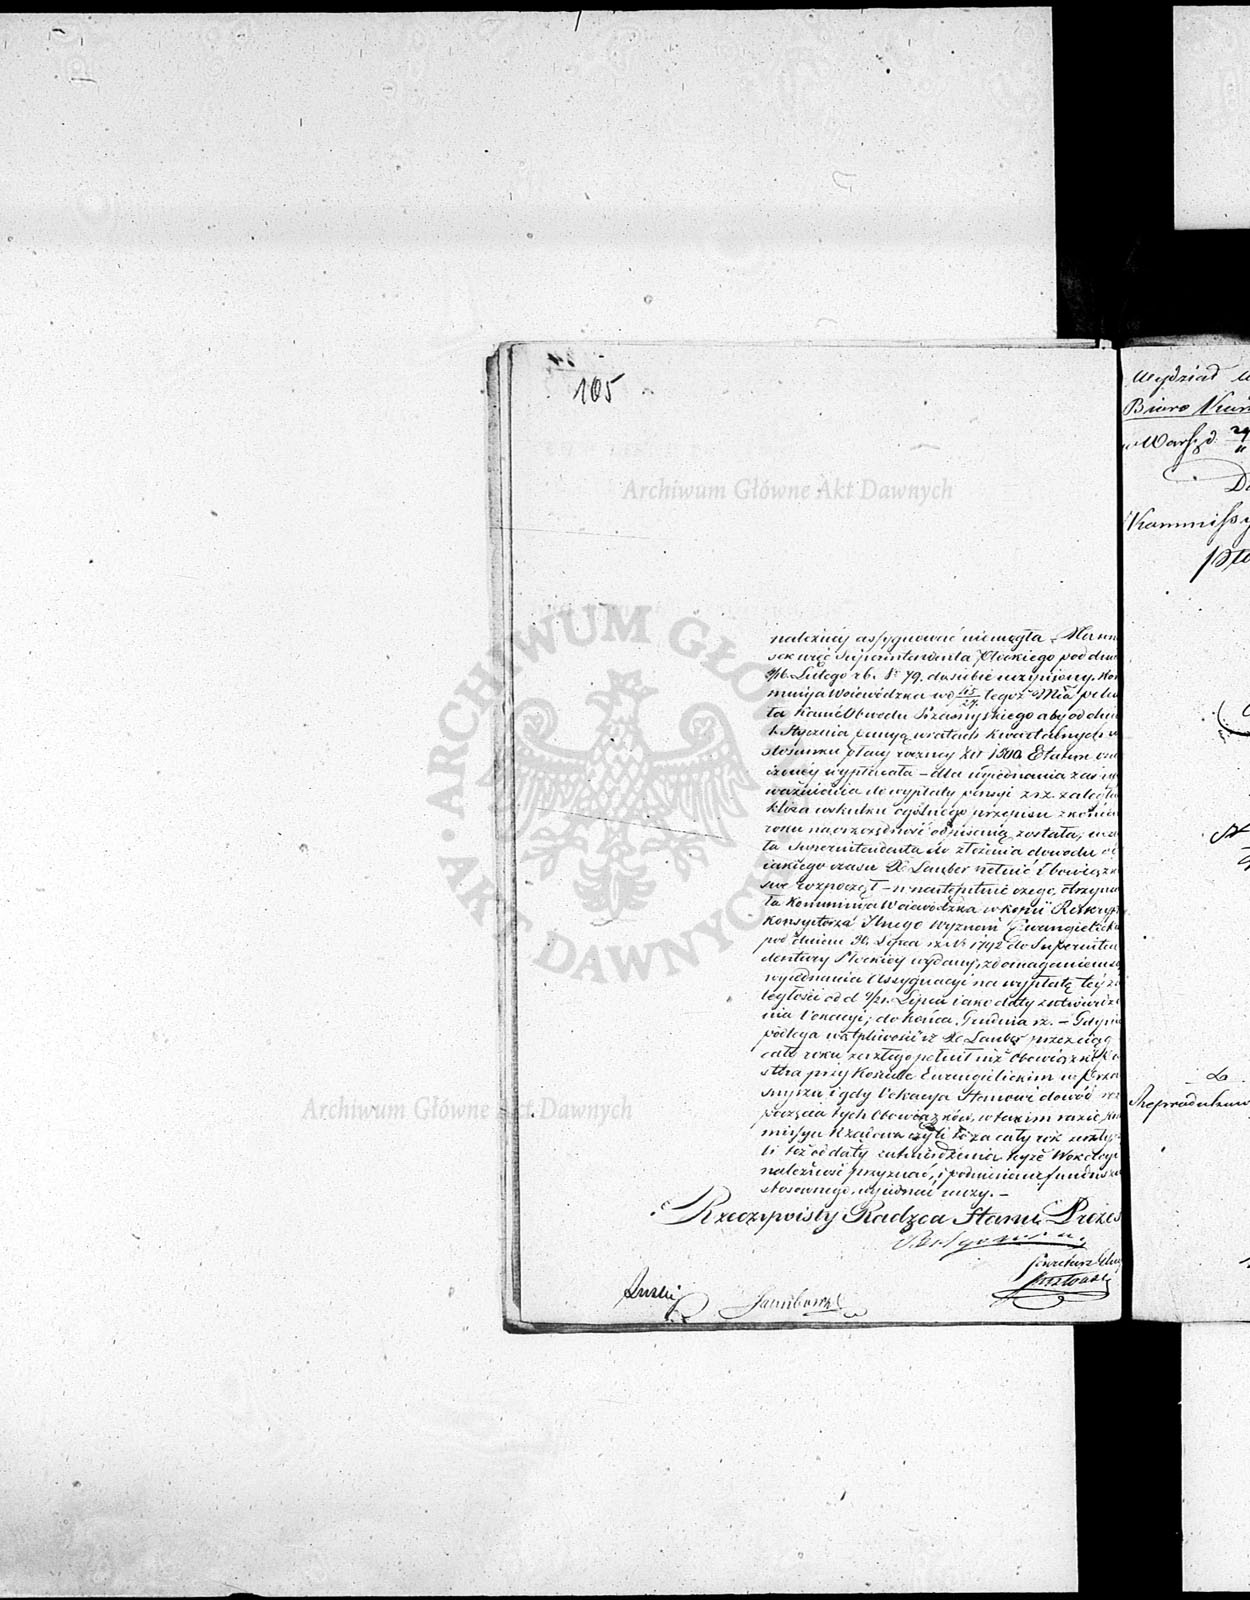 105
Archiwum Główne Akt Dawnych
należniej assygnować niemogła. Na wnio
sek więc Superintendenta Płockiego pod dniem
Lutego rb. Nr 79. do siebie uczyniony, Kom
missya Woiewódzka tegoż Mca poleci
ła Kassie Obwodu Przasnyskiego aby od dnia
1. Stycznia pensyą w ratach kwartalnych w
stosunku płacy roczney Złt 1500 Etatem ozna
czoney wypłacała – dla wyiednania zaś u
ważnienia do wypłaty pensyi z r.z. zaległej
która w skutku ogólnego przepisu z końcem
roku na oszczędność odpisaną została, wezwa
ła Superintendenta do złożenia dowodu od
iakiego czasu X. Lauber pełnić Obowiązki
swe rozpoczął – w następstwie czego, otrzyma
ła Kommissya Woiewódzka w kopii Reskrypt
Konsystorza Jlnego Wyznań Ewangielickich
pod dniem Lipca rz. Nr 1792 do Superinten
dentury Płockiey wydany, z domaganiem się
wyiednania Assygnacyi na wypłatę tey za
ległości od d. 9/21. Lipca iako daty zatwierdze
nia Vokacyi, do końca Grudnia rz. – Gdy nie
podlega wątpliwości iż X. Lauber przez ciąg
cały roku zeszłego pełnił już Obowiązki Pa
stora przy Kościele Ewangielickim w Prza
snyszu i gdy Vokacya stanowi dowód roz
poczęcia tych Obowiązków, w takim razie Kom
missya Rządowa czyli to za cały rok zeszły
li też od daty zatwierdzenia teyże Wokacyi
należność przyznać, i podniesienie funduszu
stosownego wyiednać raczy. –
Rzeczywisty Radzca Stanu Prezes
Sekretarz Jlny
Wydział
Biuro
w Warsz. d.
Do
Kommissyi